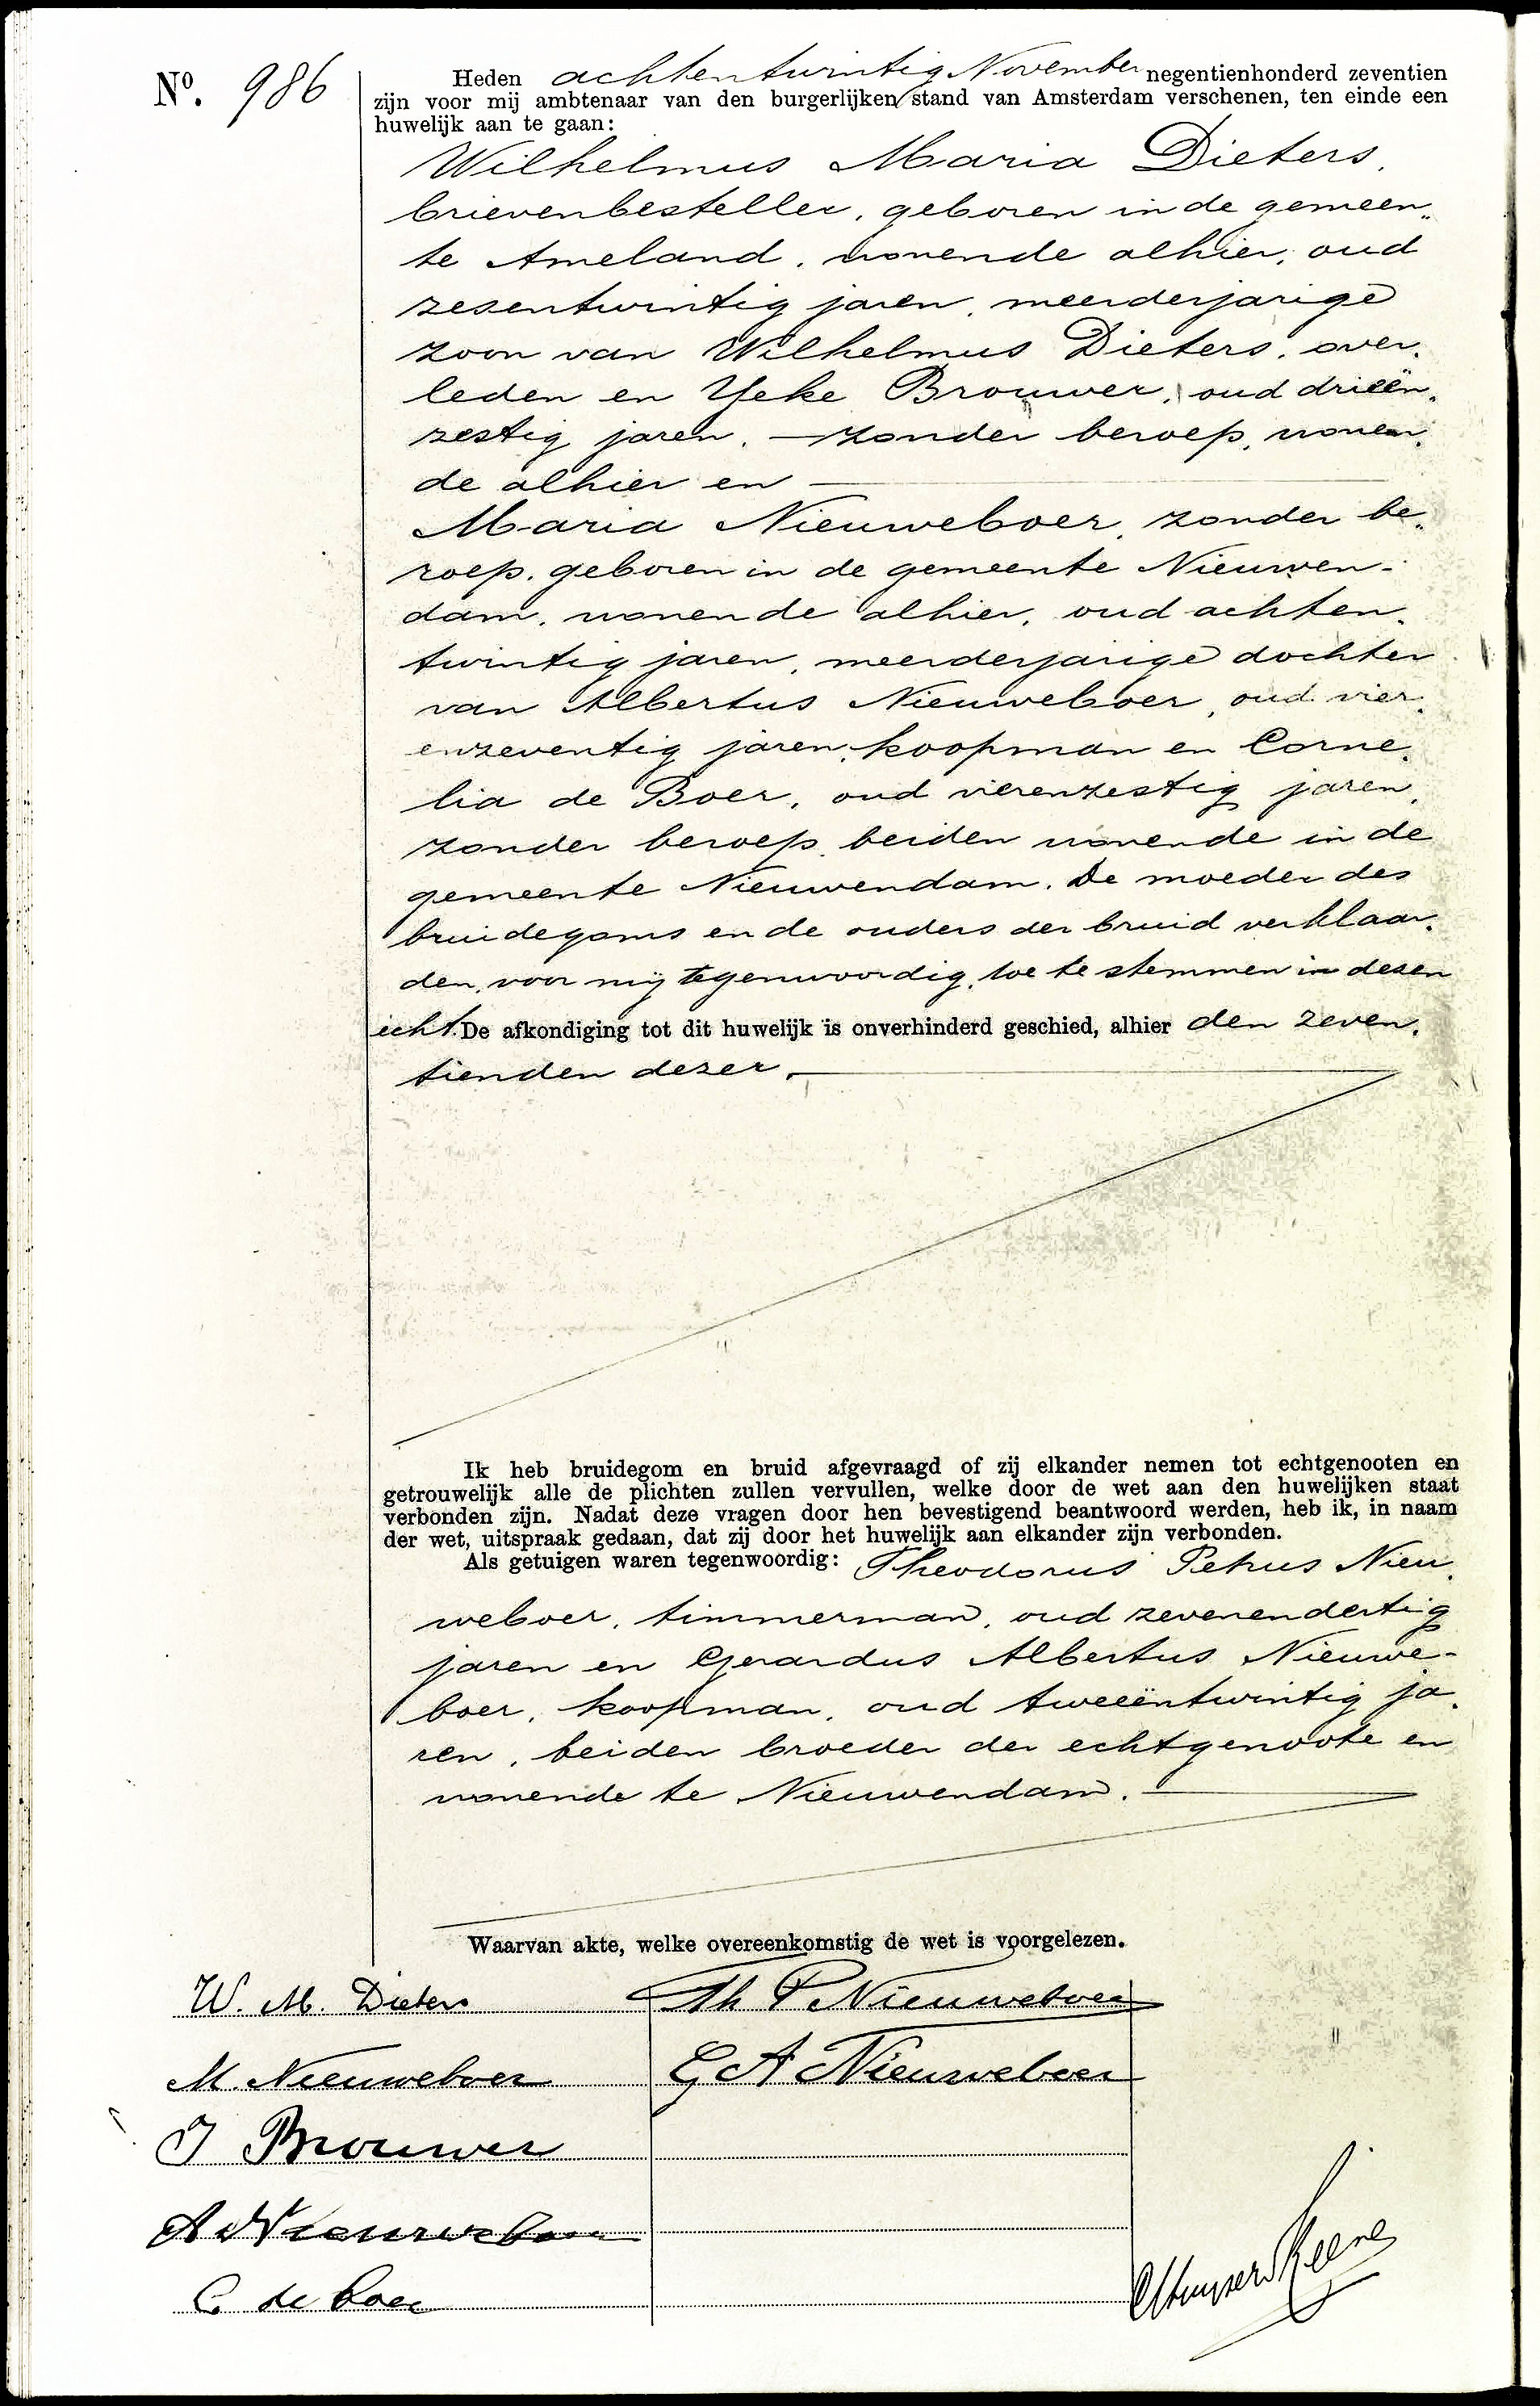 No. 986
Heden achtentwintig November negentienhonderd zeventien
zijn voor mij ambtenaar van den burgerlijken stand van Amsterdam verschenen, ten einde een
huwelijk aan te gaan:
Wilhelmus Maria Dieters,
brievenbesteller, geboren in de gemeen„
te Ameland, wonende alhier, oud
zesentwintig jaren, meerderjarige
zoon van Wilhelmus Dieters, over„
leden en Yeke Brouwer, oud drieën„
zestig jaren, zonder beroep, wonen„
de alhier en
Maria Nieuweboer, zonder be„
roep, geboren in de gemeente Nieuwen-
dam, wonende alhier, oud achten„
twintig jaren, meerderjarige dochter
van Albertus Nieuweboer, oud vier„
enzeventig jaren, koopman en Corne„
lia de Boer, oud vierenzestig jaren,
zonder beroep, beiden wonende in de
gemeente Nieuwendam. De moeder des
bruidegoms en de ouders der bruid verklaar„
den, voor mij tegenwoordig, toe te stemmen in dezen
echt. De afkondiging tot dit huwelijk is onverhinderd geschied, alhier den zeven„
tienden dezer.
Ik heb bruidegom en bruid afgevraagd of zij elkander nemen tot echtgenooten en
getrouwelijk alle de plichten zullen vervullen, welke door de wet aan den huwelijken staat
verbonden zijn. Nadat deze vragen door hen bevestigend beantwoord werden, heb ik, in naam
der wet, uitspraak gedaan, dat zij door het huwelijk aan elkander zijn verbonden.
Als getuigen waren tegenwoordig: Theodorus Petrus Nieu„
weboer, timmerman, oud zevenendertig
jaren en Gerardus Albertus Nieuwe-
boer, koopman, oud tweeëntwintig ja„
ren, beiden broeder der echtgenoote en
wonende te Nieuwendam.
Waarvan akte, welke overeenkomstig de wet is voorgelezen.
W. M. Dieters Th P Nieuweboer
M. Nieuweboer G A Nieuweboer
J Brouwer
A Nieuweboer
C de boer